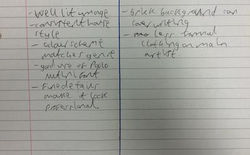 - Well lit image
- consistent house
style
- colour scheme
matches genre
- good use of Polo
Mutin font
- Fine details
make it look
professional
- brick background can
lower writing
- may less formal
clothing on main
artist